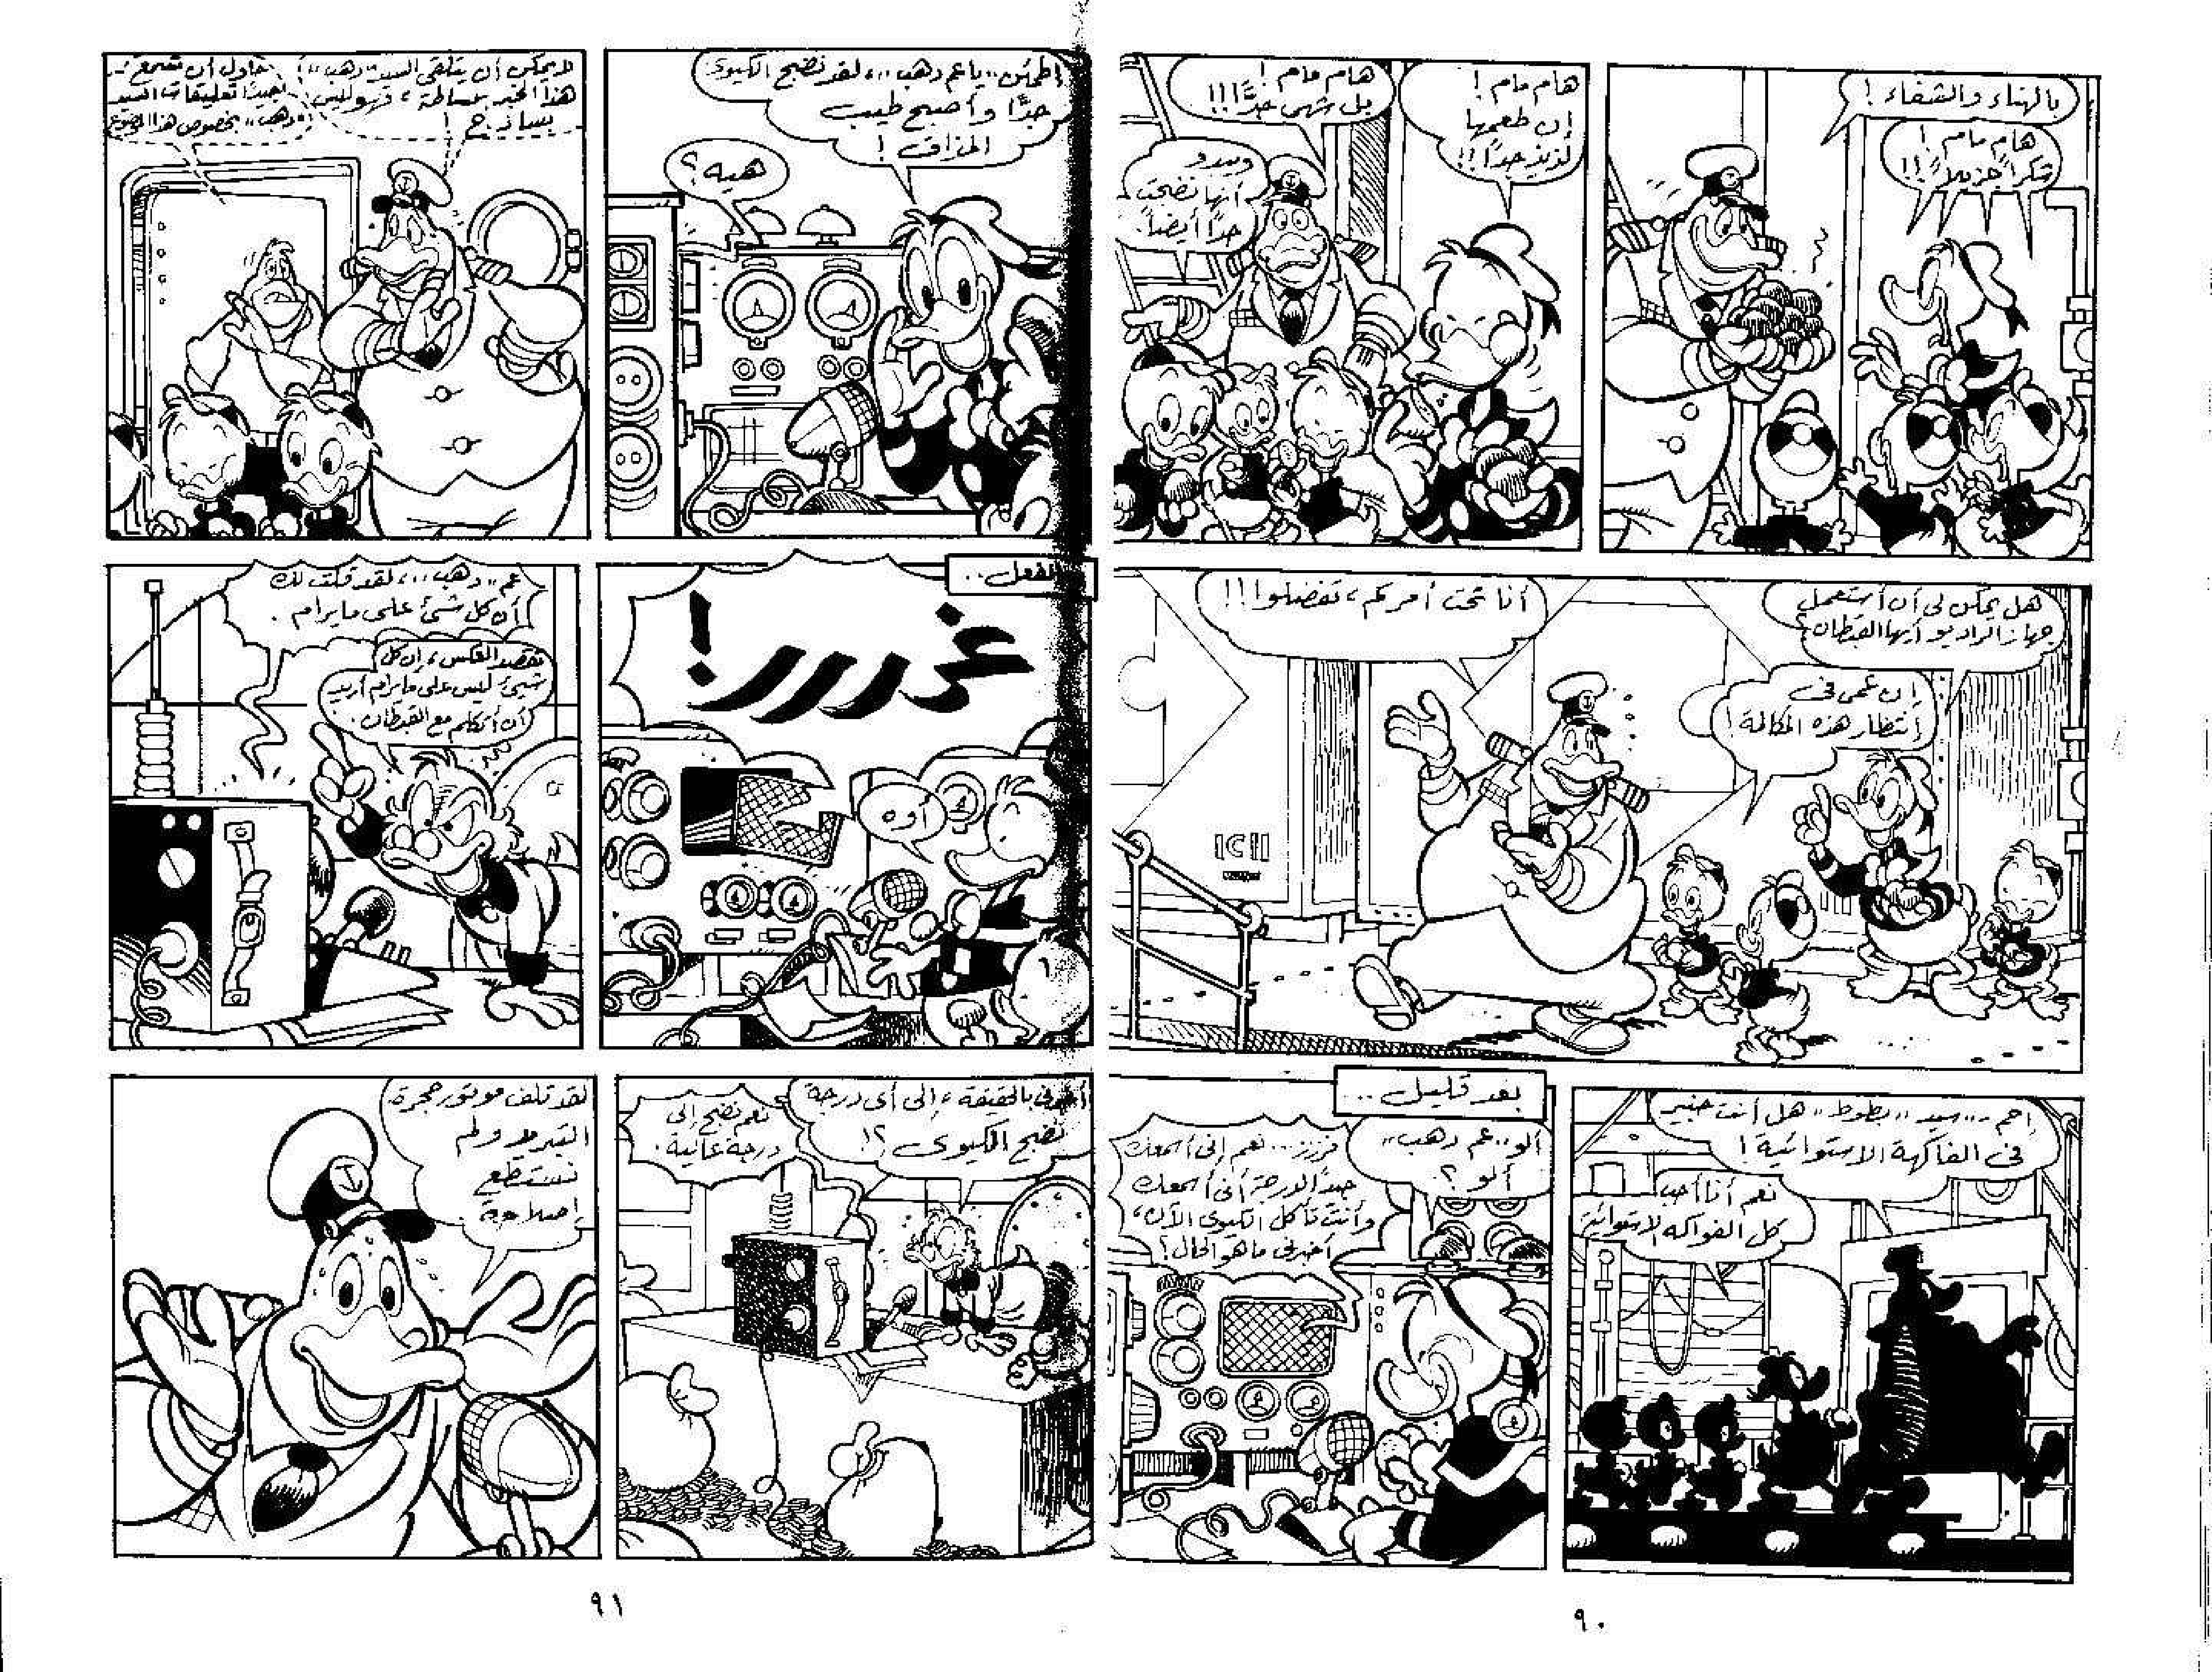 بالهناء والشفاء !
هام مام !
شكراً جزيلاً !!!
هام مام !
إن طعمها
لذيذ جداً !!
هام مام !
بل شهى جداً !!!
ويبدو
أنها نضجت
جداً أيضاً.
هل يمكن لى أن أستعمل
جهاز الراديو أيها القبطان ؟
إن عمى فى
إنتظار هذه المكالمة !
أنا تحت أمركم ، تفضلوا !!
إحم .. سيد ,, بطوط ,, هل أنت خبير
فى الفاكهة الاستوائية !
نعم أنا أحب
كل الفواكه الاستوائية
بعد قليل ...
ألو ,, عم دهب ,,
ألو ؟
فززز ... نعم إنى أسمعك
جيداً لدرجة أنى أسمعك
وأنت تأكل الكيوى الآن ،
أخبرنى ما هو الحال ؟
٩٠
إطمئن ,, ياعم دهب ,, ، لقد نضج الكيوى
جداً وأصبح طيب
المذاق !
هيه ؟
لا يمكن أن يتلقى السيد ,, دهب ,,
هذا الخبر ببساطة ، فهو ليس
بساذج !
حاول أن تسمع
جيداً تعليقات السيد
,, دهب ,, بخصوص هذا الموضوع
بالفعل ..
غرررر !
أوه
عم ,, دهب ,, ، لقد قلت لك
أن كل شئ على مايرام .
تقصد العكس ، إن كل
شيئ ليس على مايرام أريد
أن أتكلم مع القبطان .
أخبرنى بالحقيقة ، إلى أى درجة
نضج الكيوى ؟!
نعم نضج إلى
درجة عالية .
لقد تلف موتور حجرة
التبريد ولم
نستطع
إصلاحه .
٩١